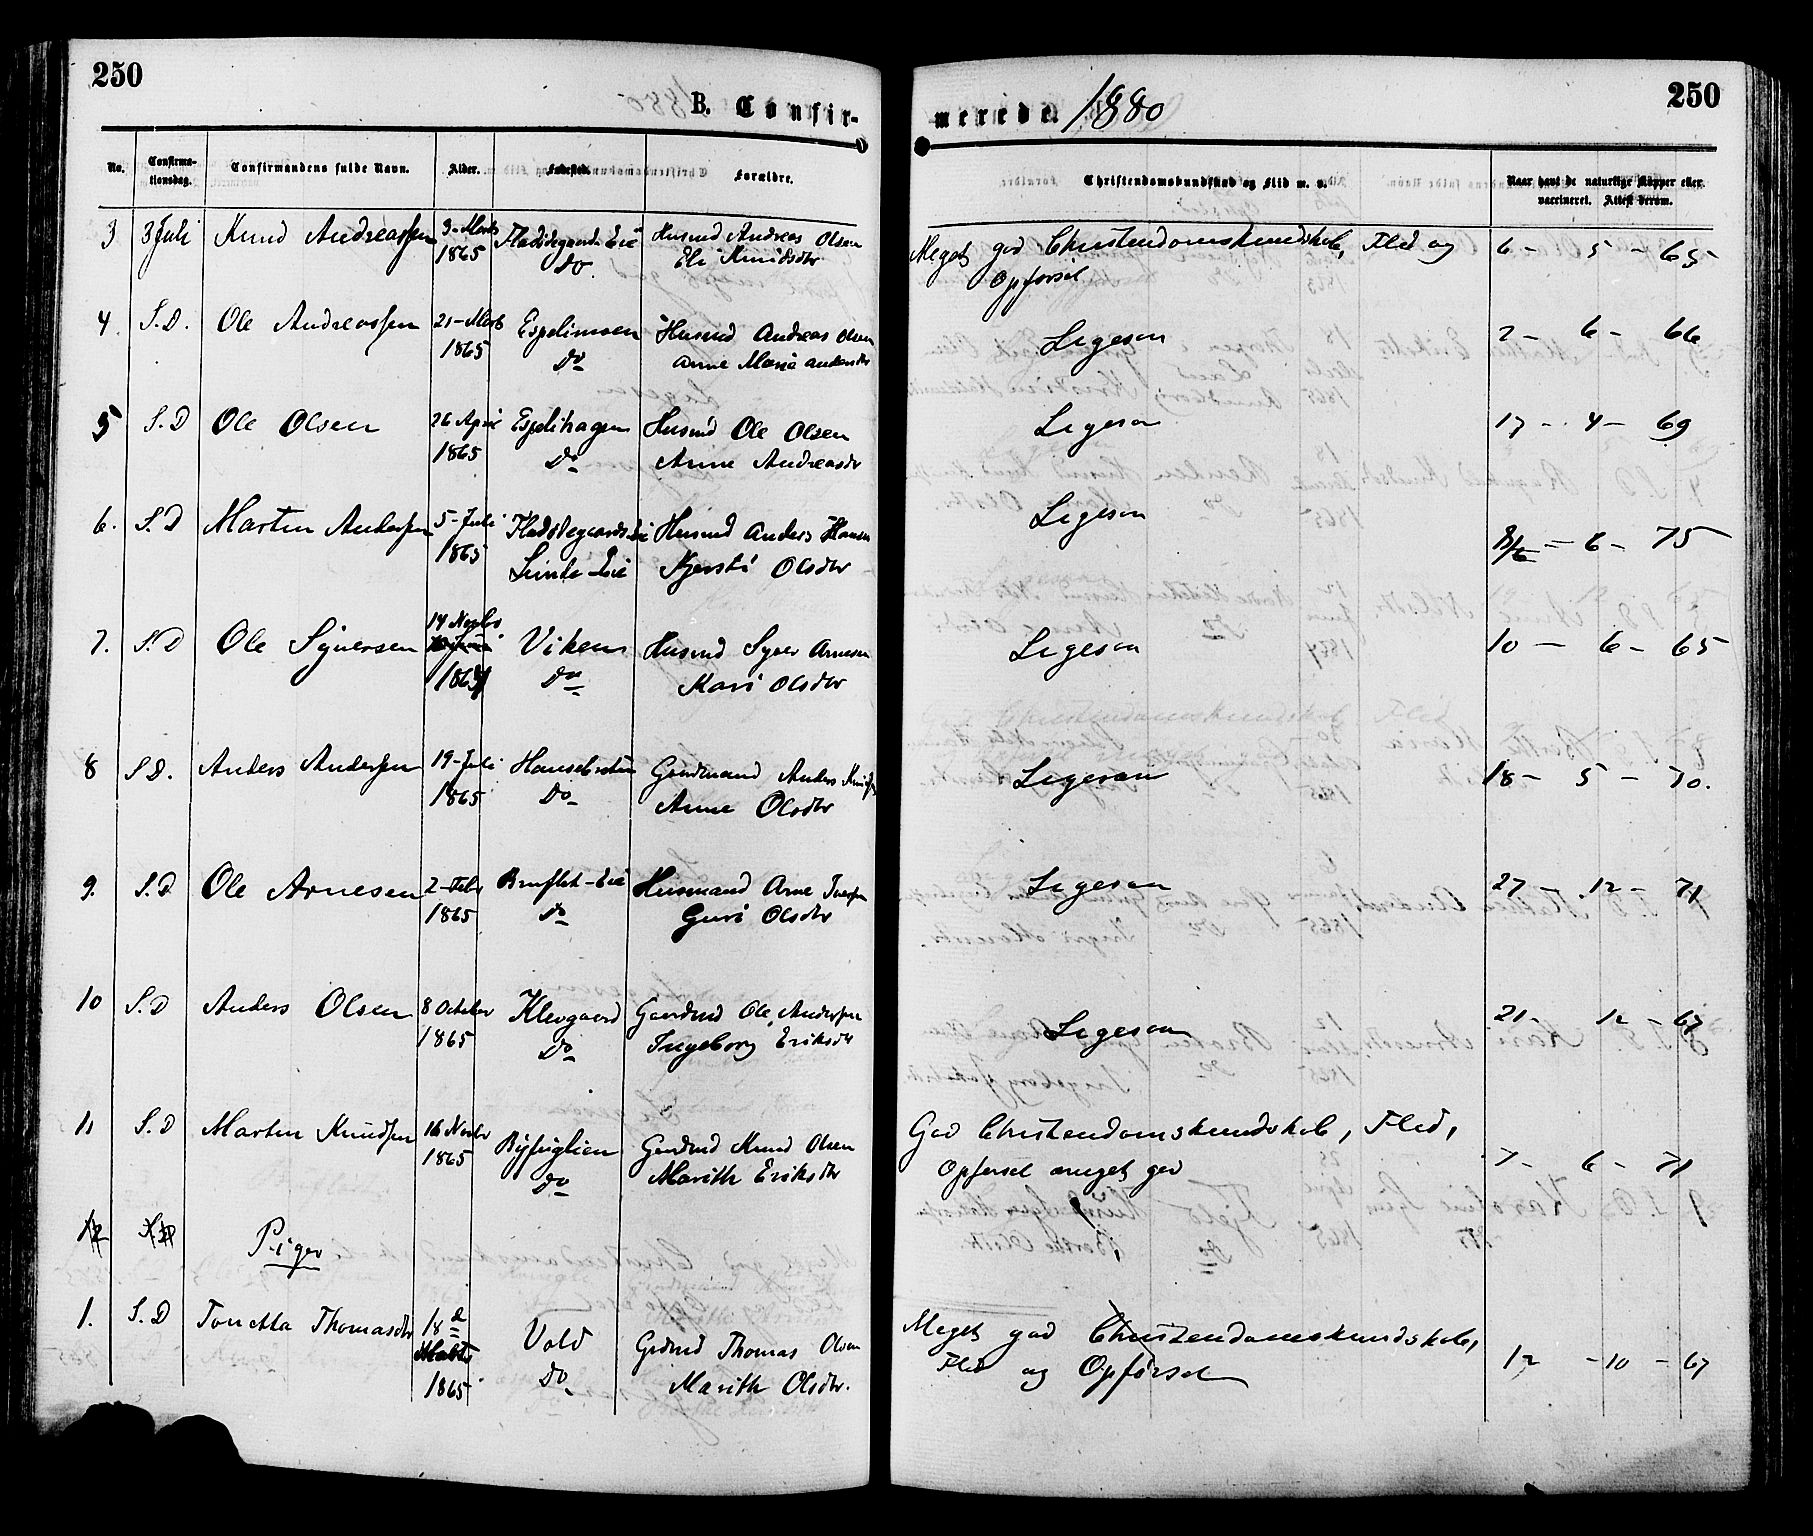 250
B. Confir-
merede. 1880
250
No.
Confirma-
tionsdag.
Confirmandens fulde Navn.
Alder.
Fødested.
Forældre.
Christendomskundskab og Flid m. v.
Naar havt de naturlige Kopper eller
vaccineret. Attest derom.
3 3 Juli Knud Andreassen 3-Marts Husmd Andreas Olsen Meget god Christendomskundskab, Flid og 6 - 5 - 65
1865 Do Eli Knudsdtr Opførsel
4. S.D. Ole Andreassen 21-Marts Espelimoen Husmd Andreas Olsen Ligesaa 2 - 6 - 66
1865 Do Anne Maria Andersdtr
5 S.D Ole Olsen 26 April Espelihagen Husmd Ole Olsen Ligesaa 17 - 4 - 69
1865 Do Anne Andreasdtr
6. S.D Martin Andersen 5-Juli Husmd Anders Hansen Ligesaa 8/6 - 6 - 75
1865 Eie Kjersti Olsdtr
7. S.D Ole Syversen 14 Novbr Viken Husmd Syver Arnesen Ligesaa 10 - 6 - 65
1864 Do Kari Olsdtr
8 S.D. Anders Andersen 19-Juli Grdmand Anders Knudsen Ligesaa 18 - 5 - 70.
1865 Do Anne Olsdtr
9. S.D Ole Arnesen 2-Febr Bruflat-Eie Husmand Arne Iversen Ligesaa 27 - 12 - 71
1865 Do Guri Olsdtr
10 S.D Anders Olsen 8 October Klevgaard Gaardmd Ole Andersen Ligesaa 21 - 12 - 67
1865 Do Ingeborg Eriksdtr
11 S.D Martin Knudsen 16 Novbr Byfuglien Gaardmd Knud Olsen God Christendomskundskab, Flid, 7 - 6 - 71
1865 Do Marith Eriksdtr Opførsel meget god
12 S.D
Piger
1. S.D Tonetta Thomasdtr 18 d Vold Grdmd Thomas Olsen Meget god Christendomskundskab, 12 - 10 - 67
Marts Do Marith Olsdtr. Flid og Opførsel
1865